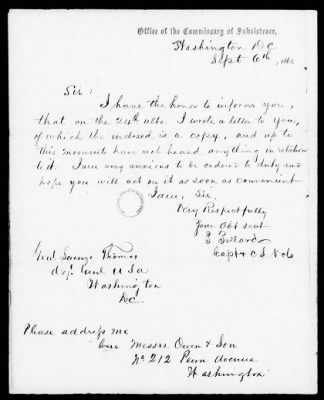 Office of the Commissary of Subsistence,
Washington DC
Sept 6th, 186
Sir:
I have the honor to inform you,
that on the 24th ulto. I wrote a letter to you,
of which the inclosed is a copy, and up to
this moment have not heard anything in relation
to it. I am very anxious to be ordered to duty and
hope you will act on it as soon as convenient
I am, Sir,
Very Respectfully
Your Obt servt
Capt & C S Vols
Genl Lorenzo Thomas
Adjt Genl U S A
Washington
D.C.
Please address me
Care Messrs. Owen & Son
No 212 Penn Avenue
Washington